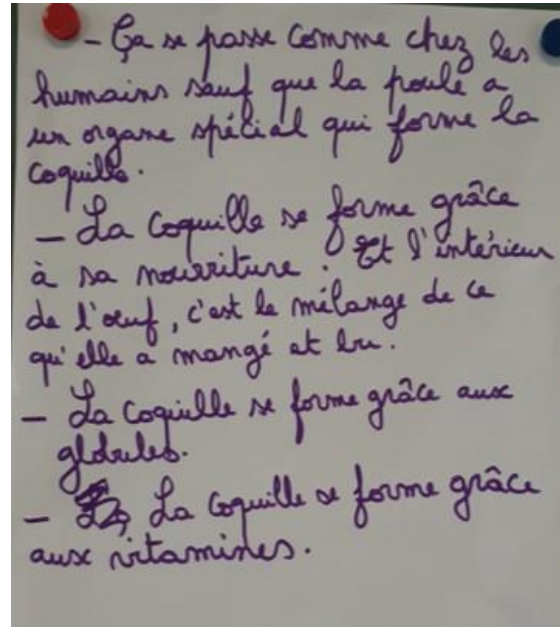 - Ça se passe comme chez les
humains sauf que la poule a
un organe spécial qui forme la
coquille.
- La coquille se forme grâce
à sa nourriture. Et l'intérieur
de l'œuf, c'est le mélange de ce
qu'elle a mangé et bu.
- La coquille se forme grâce aux
globules.
- La coquille se forme grâce
aux vitamines.